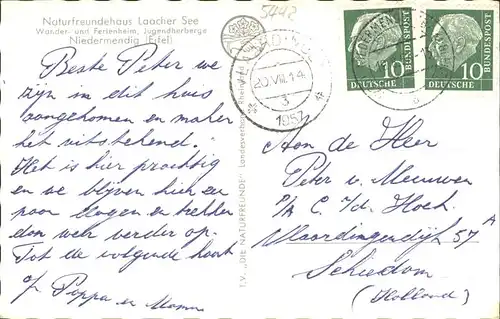 Naturfreundehaus Laacher See
Wander- und Ferienheim, Jugendherberge
Niedermendig (Eifel)
Beste Peter we
zijn in dit huis
aangekomen en maken
het uitstekend.
Het is hier prachtig
en we blijven hier een
paar dagen en trekken
dan weer verder op.
Tot de volgende kaart
Pappa en Mamma
T.V. „DIE NATURFREUNDE" Landesverband
5442
20.VIII.
3
1957
10
DEUTSCHE
BUNDESPOST
10
DEUTSCHE
BUNDESPOST
Aan de Heer
Peter v. Meeuwen
P/A C. v/d. Hoek.
Vlaardingerdijk 57 A
Schiedam
(Holland)